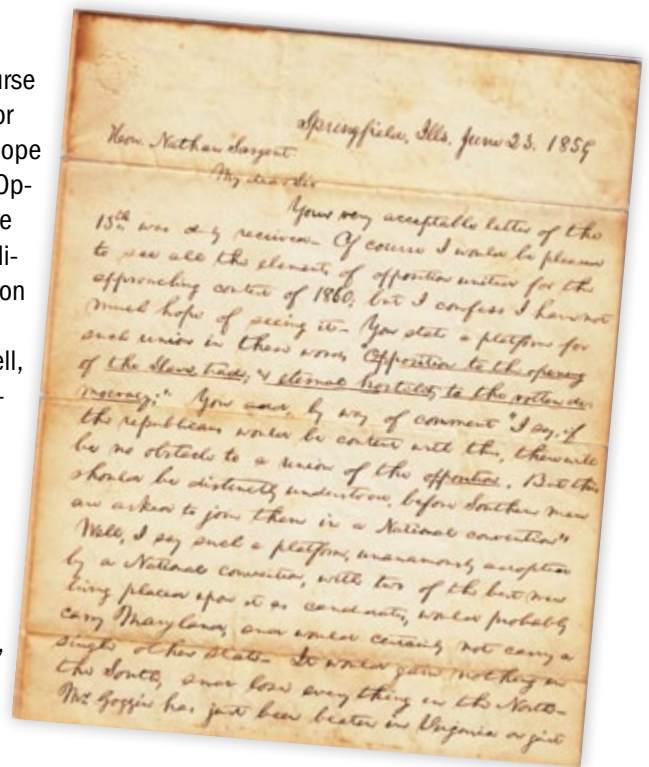 urse
or
ope
Op-
e
di-
on
ell,
-
,
Springfield, Ills. June 23. 1859
Hon. Nathan Sargent.
My dear Sir
Your very acceptable letter of the
13th was duly received. Of course I would be pleased
to see all the elements of opposition united for the
approaching contest of 1860; but I confess I have not
much hope of seeing it. You state a platform for
such union in these words "Opposition to the opening
of the Slave-trade; & eternal hostility to the rotten de-
mocracy;" You add, by way of comment "I say, if
the republicans would be content with this, there will
be no obstacle to a union of the opposition. But this
should be distinctly understood, before Southern men
are asked to join them in a National convention"
Well, I say such a platform, unanamously adopted
by a National convention, with two of the best men
living placed upon it as candidates, would probably
carry Maryland, and would certainly not carry a
single other state. It would gain nothing in
the South, and lose every thing in the North.
Mr. Goggin has just been beaten in Virginia on just